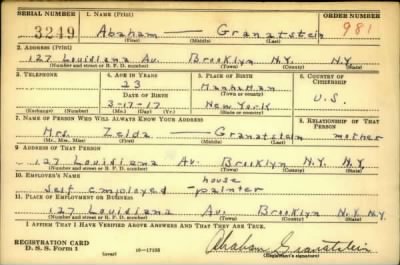 SERIAL NUMBER 1. NAME (Print) ORDER NUMBER
3249 Abraham — Granatstein 981
(First) (Middle) (Last)
2. ADDRESS (Print)
127 Louisiana Av. Brooklyn N.Y. N.Y.
(Number and street or R. F. D. number) (Town) (County) (State)
3. TELEPHONE 4. AGE IN YEARS 5. PLACE OF BIRTH 6. COUNTRY OF CITIZENSHIP
23 Manhattan
DATE OF BIRTH (Town or county)
3-17-17 New York U.S.
(Exchange) (Number) (Mo.) (Day) (Yr.) (State or country)
7. NAME OF PERSON WHO WILL ALWAYS KNOW YOUR ADDRESS 8. RELATIONSHIP OF THAT PERSON
Mrs. Zelda — Granatstein mother
(Mr., Mrs., Miss) (First) (Middle) (Last)
9. ADDRESS OF THAT PERSON
127 Louisiana Av. Brooklyn N.Y. N.Y.
(Number and street or R. F. D. number) (Town) (County) (State)
10. EMPLOYER'S NAME house
self employed - painter
11. PLACE OF EMPLOYMENT OR BUSINESS
127 Louisiana Av. Brooklyn N.Y. N.Y.
(Number and street or R. F. D. number) (Town) (County) (State)
I AFFIRM THAT I HAVE VERIFIED ABOVE ANSWERS AND THAT THEY ARE TRUE.
REGISTRATION CARD
D. S. S. Form 1 16—17105 Abraham Granatstein
(over) (Registrant's signature)